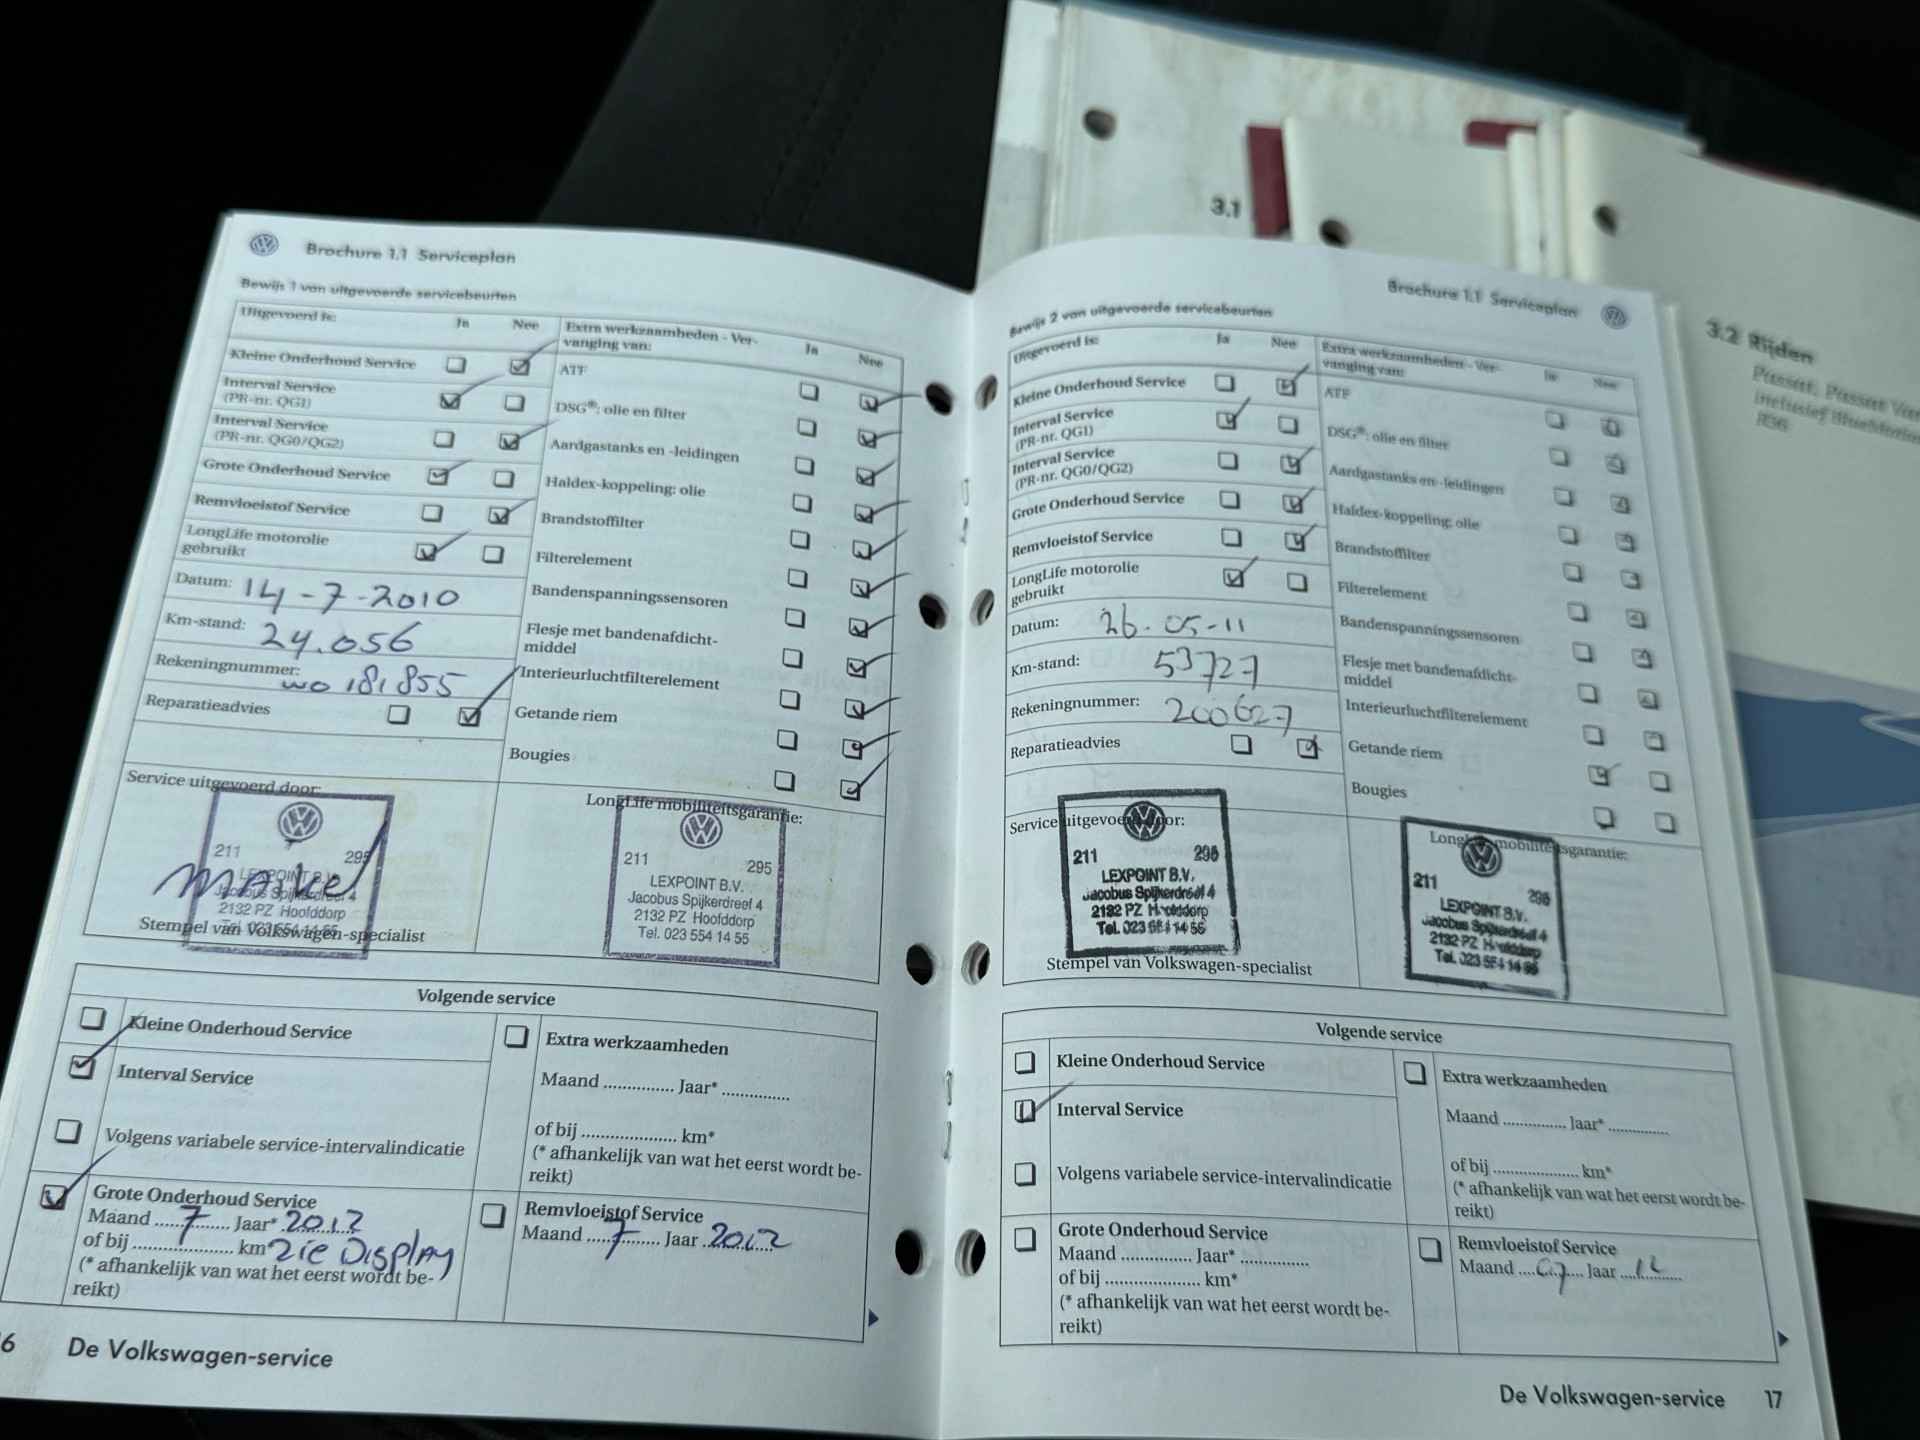 Brochure 1.1 Serviceplan
Bewijs 1 van uitgevoerde servicebeurten
Uitgevoerd is:
Ja
Nee
Kleine Onderhoud Service
Interval Service
(PR-nr. QG1)
Interval Service
(PR-nr. QG0/QG2)
Grote Onderhoud Service
Remvloeistof Service
LongLife motorolie
gebruikt
Datum: 14-7-2010
Km-stand: 24.056
Rekeningnummer: wo 181855
Reparatieadvies
Extra werkzaamheden - Ver-
vanging van:
Ja
Nee
ATF
DSG®: olie en filter
Aardgastanks en -leidingen
Haldex-koppeling: olie
Brandstoffilter
Filterelement
Bandenspanningssensoren
Flesje met bandenafdicht-
middel
Interieurluchtfilterelement
Getande riem
Bougies
Service uitgevoerd door:
211 295
LEXPOINT B.V.
Jacobus Spijkerdreef 4
2132 PZ Hoofddorp
Tel. 023 554 14 55
Stempel van Volkswagen-specialist
LongLife mobiliteitsgarantie:
211 295
LEXPOINT B.V.
Jacobus Spijkerdreef 4
2132 PZ Hoofddorp
Tel. 023 554 14 55
Volgende service
Kleine Onderhoud Service
Interval Service
Volgens variabele service-intervalindicatie
Grote Onderhoud Service
Maand ....7.... Jaar* 2012
of bij .................... km* zie Display
(* afhankelijk van wat het eerst wordt be-
reikt)
Extra werkzaamheden
Maand ............... Jaar* ...............
of bij .................... km*
(* afhankelijk van wat het eerst wordt be-
reikt)
Remvloeistof Service
Maand ....7.... Jaar 2012
De Volkswagen-service
Brochure 1.1 Serviceplan
Bewijs 2 van uitgevoerde servicebeurten
Uitgevoerd is:
Ja
Nee
Kleine Onderhoud Service
Interval Service
(PR-nr. QG1)
Interval Service
(PR-nr. QG0/QG2)
Grote Onderhoud Service
Remvloeistof Service
LongLife motorolie
gebruikt
Datum: 26-05-11
Km-stand: 53727
Rekeningnummer: 200627
Reparatieadvies
Extra werkzaamheden - Ver-
vanging van:
Ja
Nee
ATF
DSG®: olie en filter
Aardgastanks en -leidingen
Haldex-koppeling: olie
Brandstoffilter
Filterelement
Bandenspanningssensoren
Flesje met bandenafdicht-
middel
Interieurluchtfilterelement
Getande riem
Bougies
Service uitgevoerd door:
211 295
LEXPOINT B.V.
Jacobus Spijkerdreef 4
2132 PZ Hoofddorp
Tel. 023 554 14 55
Stempel van Volkswagen-specialist
LongLife mobiliteitsgarantie:
211 295
LEXPOINT B.V.
Jacobus Spijkerdreef 4
2132 PZ Hoofddorp
Tel. 023 554 14 55
Volgende service
Kleine Onderhoud Service
Interval Service
Volgens variabele service-intervalindicatie
Grote Onderhoud Service
Maand ............... Jaar* ...............
of bij .................... km*
(* afhankelijk van wat het eerst wordt be-
reikt)
Extra werkzaamheden
Maand ............... Jaar* ...............
of bij .................... km*
(* afhankelijk van wat het eerst wordt be-
reikt)
Remvloeistof Service
Maand ....07.... Jaar ..12..
De Volkswagen-service 17
3.1
3.2 Rijden
Passat, Passat
inclusief
R36